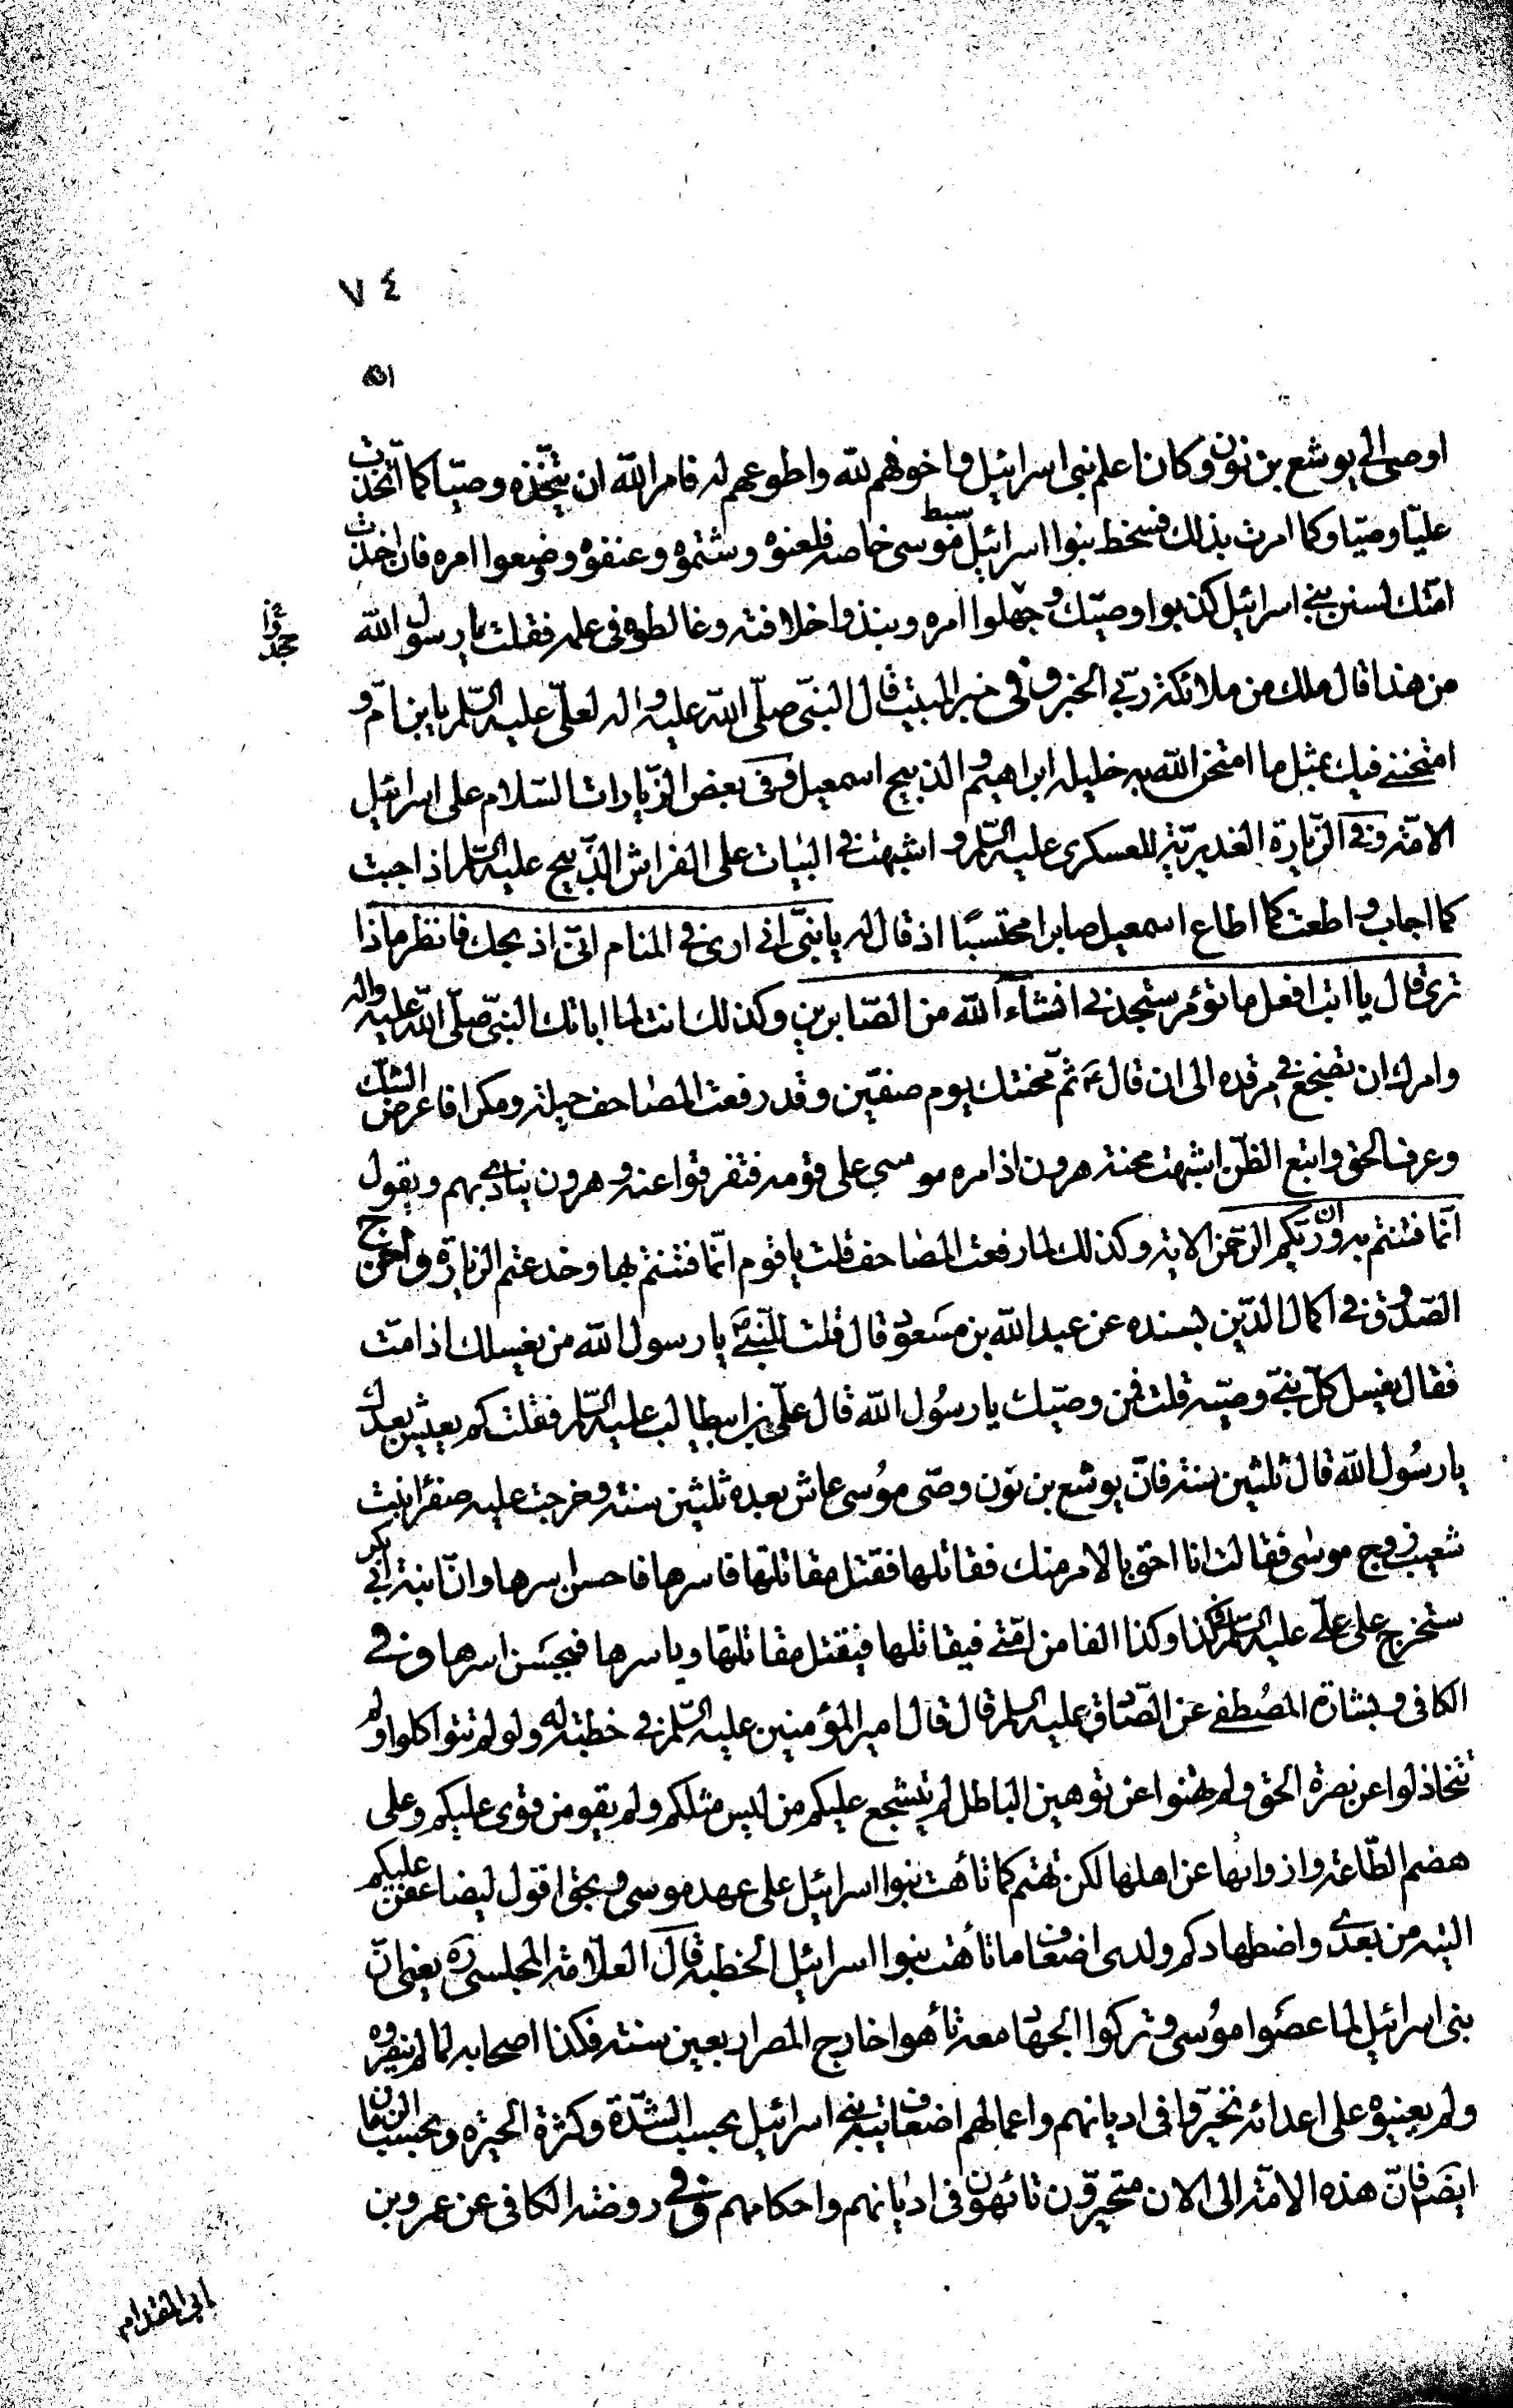 ٧٤
٥١
اوصى الى يوشع بن نون وكان اعلم بنى اسرائيل واخوفهم لله واطوعهم له فامر الله ان يتخذه وصيّا كما اتخذت
عليّا وصيّا وكما امرت بذلك فسخط بنوا اسرائيل سبط موسى خاصه فلعنوه وشتموه وعنفوه ووضعوا امره فان اخذت
امّتك لسنن بنى اسرائيل كذبوا وصيّك وجهلوا امره وبنذوا خلافته وغالطوه فى علمه فقلت يا رسول الله
جحدوا
من هذا قال ملك من ملائكة ربّى الخبر وفى خبر المبيت قال النبىّ صلّى الله عليه واله لعلىّ عليه السّلم يابن امّ و
امتحننى فيك بمثل ما امتحن الله به خليله ابراهيم والذبيح اسمعيل وفى بعض الزّيارات السّلام على اسرائيل
الامّة وفى الزّيارة الغديريّة للعسكرى عليه السّلم واشبهت فى البيات على الفراش الذّبيح عليه السّلم اذ اجبت
كما اجاب واطعت كما اطاع اسمعيل صابرا محتسبًا اذ قال له يا بنىّ انى ارى فى المنام انّى اذبحك فانظر ماذا
ترى قال يا ابت افعل ما تؤمر ستجدنى انشاء الله من الصّابرين وكذلك انت لما اباتك النبىّ صلّى الله عليه واله
وامرك ان تضجع فى مرقده الى ان قال ع ثمّ محنتك يوم صفّين وقد رفعت المصاحف حيلة ومكرا فاعرض الشك
وعرف الحق واتبع الظّن اشبهت محنة هرون اذ امره موسى على قومه فتفرقوا عنه وهرون ينادى بهم ويقول
انّما فتنتم به وانّ ربّكم الرّحمن الاية وكذلك لما رفعت المصاحف قلت يا قوم انّما فتنتم بها وخدعتم الزيارة واخرج
الصّدوق فى اكمال الدّين بسنده عن عبد الله بن مسعود قال قلت للنّبىّ يا رسول الله من يغسلك اذا متّ
فقال يغسل كلّ نبىّ وصيّه قلت فمن وصيّك يا رسُول الله قال علىّ بن ابيطالب عليه السّلم فقلت كم يعيش بعدك
يا رسُول الله قال ثلثين سنة فانّ يوشع بن نون وصّى موُسى عاش بعده ثلثين سنة وخرجت عليه صفراء بنت
شعيب زوج موسى فقالت انا احق بالامر منك فقاتلها فقتل مقاتلتها فاسرها فاحسن اسرها وانّ ابنة ابى بكر
ستخرج على علىّ عليه السّلم فى كذا وكذا الفا من امّتى فيقاتلها فيقتل مقاتلتها وياسرها فيحسَن اسرها وفى
الكافى وبشارة المصُطفى عن الصّادق عليه السلم قال قال امير المؤمنين عليه السّلم فى خطبة له ولو لم تتواكلوا ولم
تتخاذلوا عن نصرة الحق ولم تهنوا عن توهين الباطل لم يتشجع عليكم من ليس مثلكم ولم يقو من قوى عليكم وعلى
هضم الطّاعة وازوائها عن اهلها لكن تهتم كما تاهت بنوا اسرائيل على عهد موسى وبحق اقول ليضاعفن عليكم
التيه من بعدى واضطهادكم ولدى اضعاف ما تاهت بنوا اسرائيل الخطبة قال العلّامة المجلسى ره يعنى انّ
بنى اسرائيل لما عصَوا موُسى وتركوا الجهاد معه تاهوا خارج المصر اربعين سنة فكذا اصحابه لما لم ينصروه
ولم يعينوه على اعدائه تحيّروا فى اديانهم واعمالهم اضعاف تيه بنى اسرائيل بحسب الشّدّة وكثرة الحيرة وبحسب الزمان
ايضًا فانّ هذه الامّة الى الان متحيّرون تائهون فى اديانهم واحكامهم وفى روضة الكافى عن عمرو بن
ابى المقدام